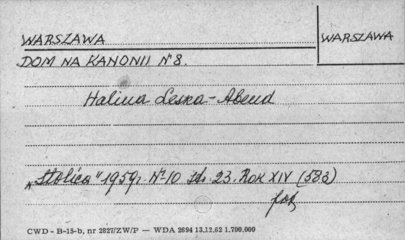 WARSZAWA
WARSZAWA
DOM NA KANONII Nº 8.
Halina Leska-Abend
"Stolica" 1959r. Nº 10 str. 23. ROK XIV (583)
fot
CWD - B-15-b, nr 2827/ZW/P — WDA 2694 13.12.62 1.700.000